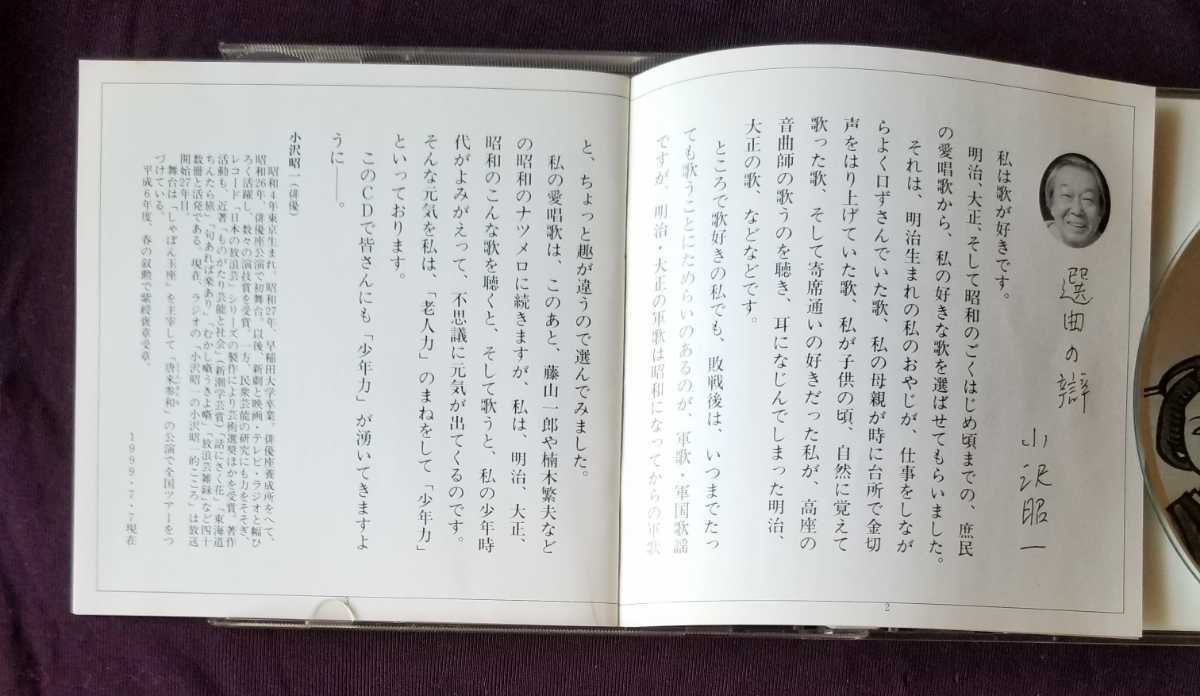 選曲の辯
小沢昭一
私は歌が好きです。
明治、大正、そして昭和のごくはじめ頃までの、庶民
の愛唱歌から、私の好きな歌を選ばせてもらいました。
それは、明治生まれの私のおやじが、仕事をしなが
らよく口ずさんでいた歌、私の母親が時に台所で金切
声をはり上げていた歌、私が子供の頃、自然に覚えて
歌った歌、そして寄席通いの好きだった私が、高座の
音曲師の歌うのを聴き、耳になじんでしまった明治、
大正の歌、などなどです。
ところで歌好きの私でも、敗戦後は、いつまでたっ
ても歌うことにためらいのあるのが、軍歌・軍国歌謡
ですが、明治・大正の軍歌は昭和になってからの軍歌
2
と、ちょっと趣が違うので選んでみました。
私の愛唱歌は、このあと、藤山一郎や楠木繁夫など
の昭和のナツメロに続きますが、私は、明治、大正、
昭和のこんな歌を聴くと、そして歌うと、私の少年時
代がよみがえって、不思議に元気が出てくるのです。
そんな元気を私は、「老人力」のまねをして「少年力」
といっております。
このCDで皆さんにも「少年力」が湧いてきますよ
うに――。
小沢昭一(俳優)
昭和4年東京生まれ。昭和27年、早稲田大学卒業。俳優座養成所をへて、
昭和26年、俳優座公演で初舞台。以後、新劇と映画・テレビ・ラジオと幅ひ
ろく活躍し、数々の演技賞を受賞。一方、民衆芸能の研究にも力をそそぎ、
レコード「日本の放浪芸」シリーズの製作により芸術選奨ほかを受賞。著作
活動も、近著「ものがたり芸能と社会」(新潮学芸賞)「話にさく花」「東海道
ちんたら旅」「句あれば楽あり」「むかし噺うきよ噺」「放浪芸雑録」など四十
数冊と活発である。現在、ラジオの「小沢昭一の小沢昭一的こころ」は放送
開始27年目。
舞台は「しゃぼん玉座」を主宰して「唐来参和」の公演で全国ツアーをつ
づけている。
平成6年度、春の叙勲で紫綬褒章受章。
1999・7・7現在